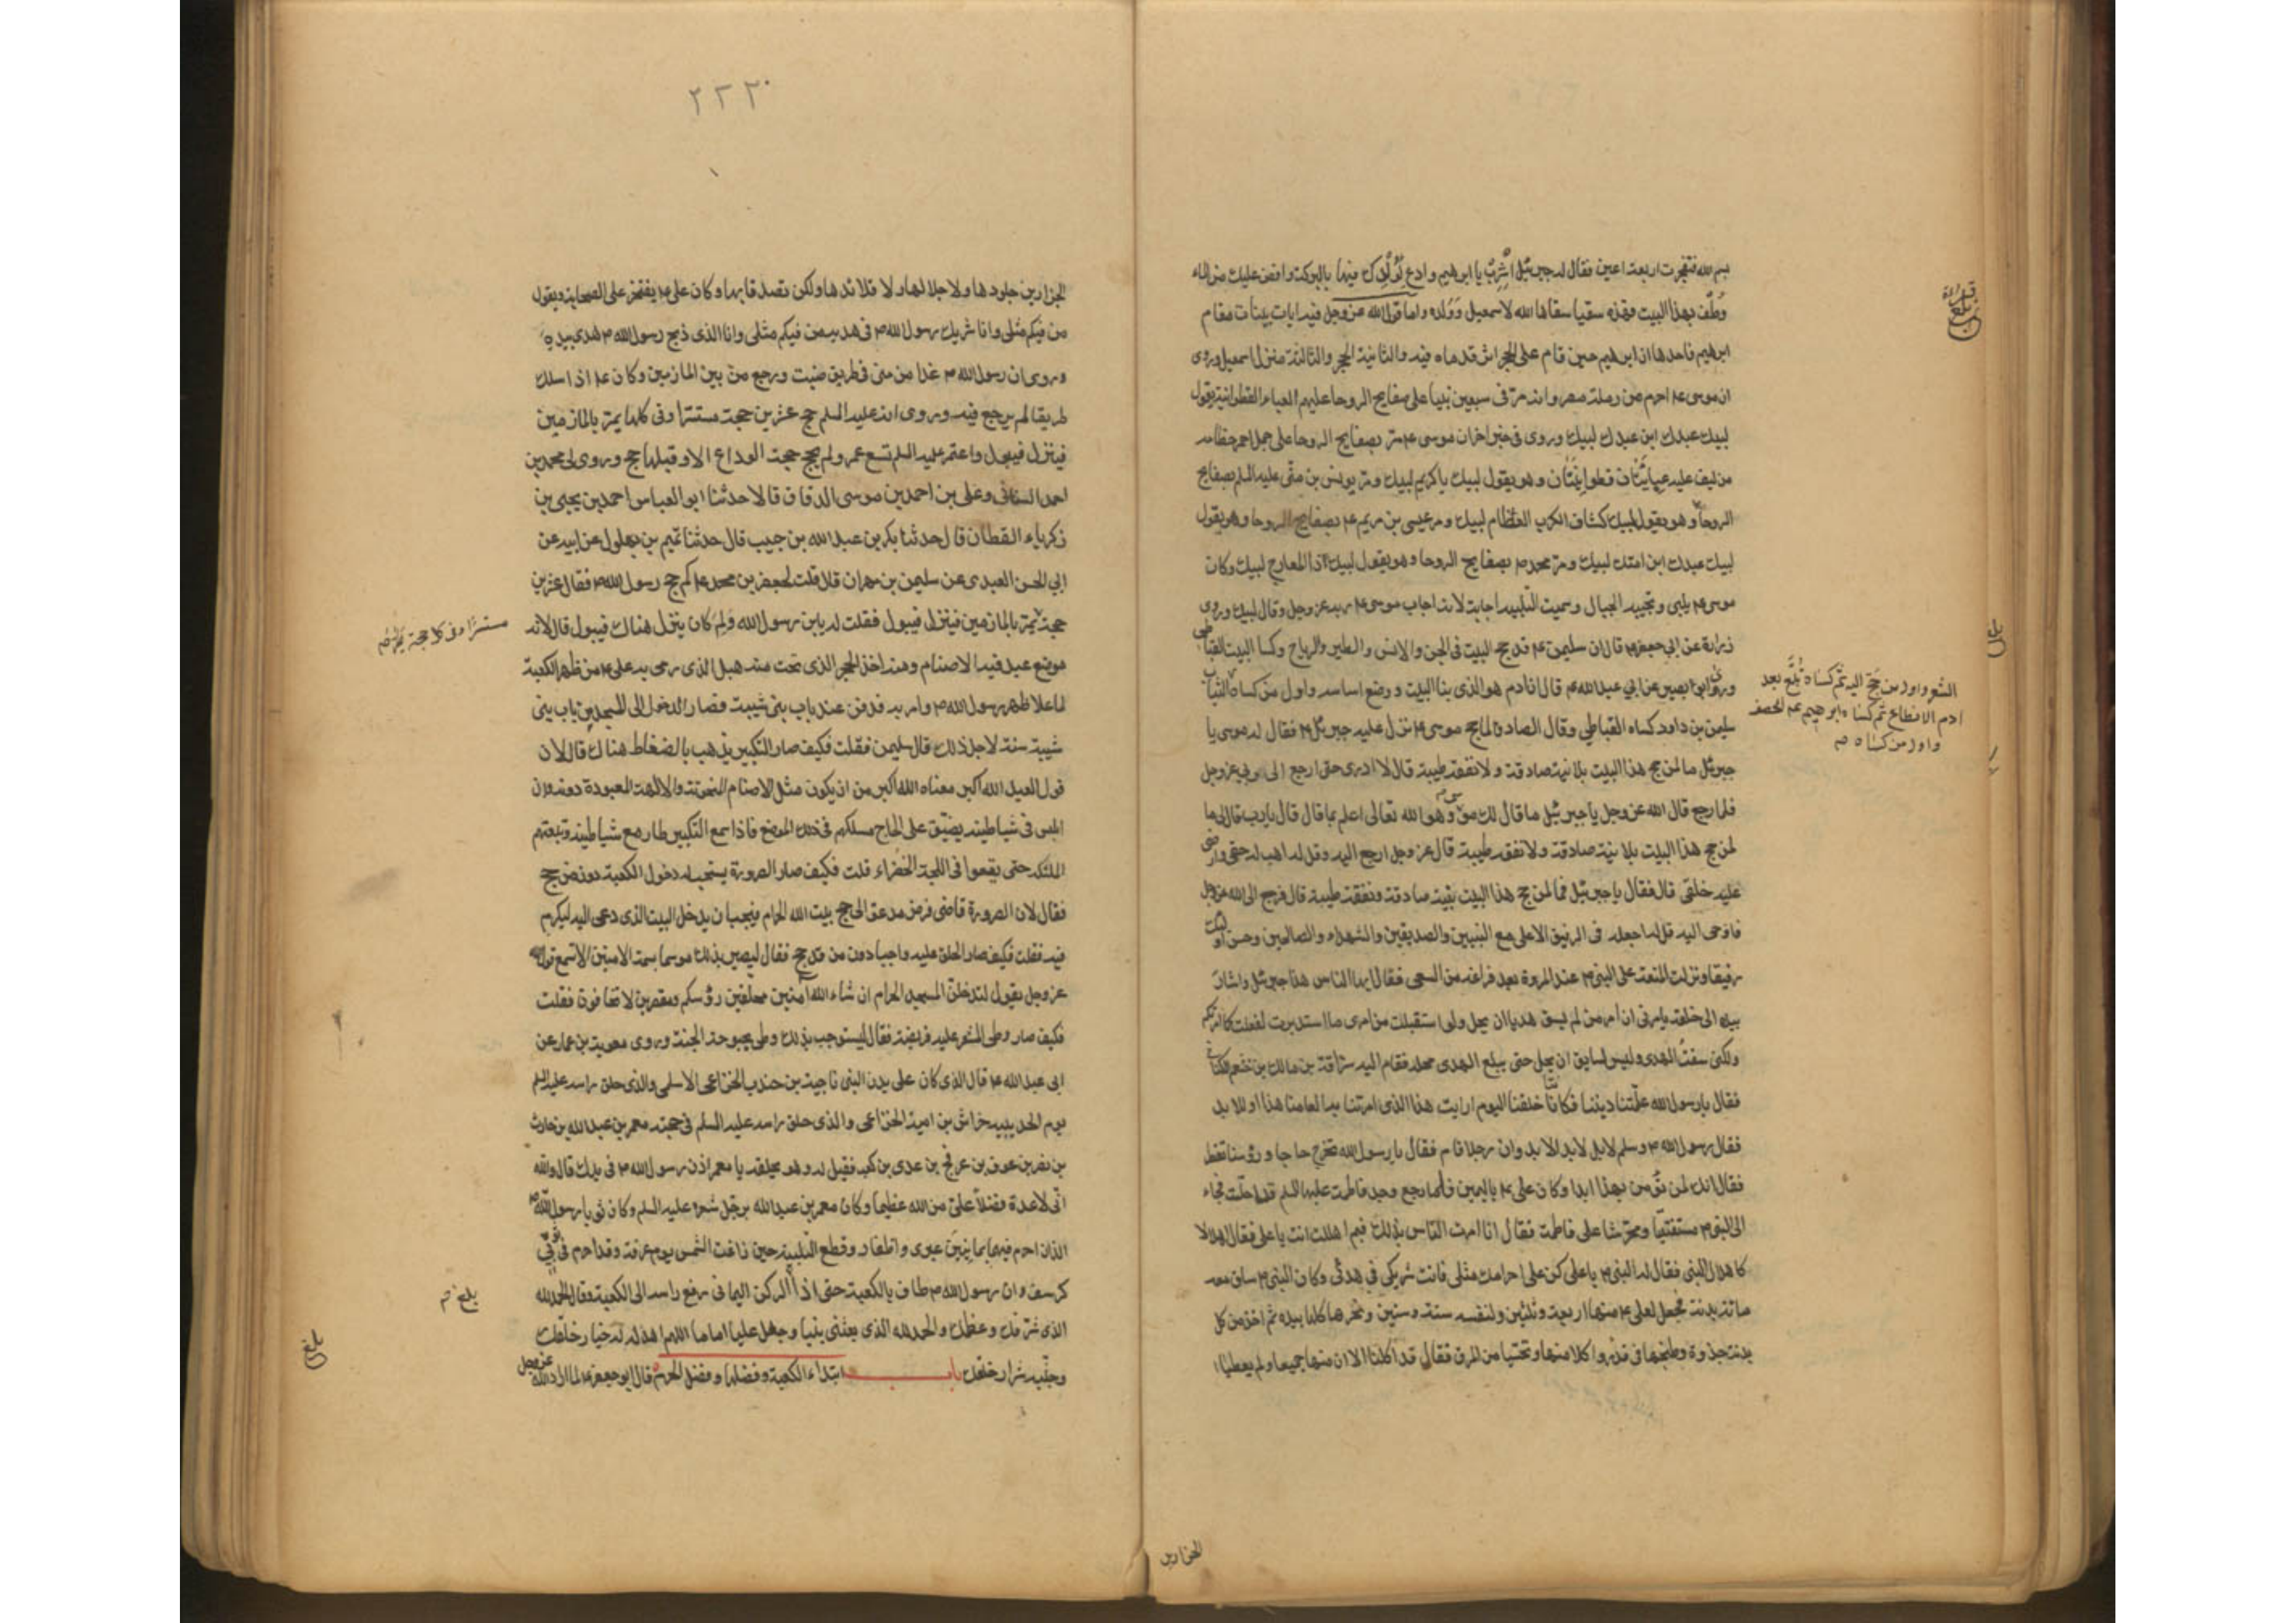 بسم الله فتفجرت اربعة اعين فقال له جبرئيل اشرب يا ابرهيم وادع لولدك فيها بالبركة وافض عليك من الماء
وطف بهذا البيت فهذه سقيا سقاها الله لاسمعيل وولده واما قول الله عز وجل فيه ايات بينات مقام
ابرهيم فاحدها ان ابرهيم حين قام على الحجر اثر قدماه فيه والثانية الحجر والثالثة منزل اسمعيل وروى
ان موسى ع احرم من رملة مصر وانه مر فى سبعين نبيا على صفايح الروحا عليهم العباء القطوانية يقول
لبيك عبدك ابن عبدك لبيك وروى فى خبر اخر ان موسى ع مر بصفايح الروحا على جمل احمر خطامه
من ليف عليه عبايتان قطوانيتان وهو يقول لبيك يا كريم لبيك ومر يونس بن متى عليه السلم بصفايح
الروحا وهو يقول لبيك كشاف الكرب العظام لبيك ومر عيسى بن مريم ع بصفايح الروحا وهو يقول
لبيك عبدك ابن امتك لبيك ومر محمد ص بصفايح الروحا وهو يقول لبيك ذا المعارج لبيك وكان
موسى ع يلبى وتجيبه الجبال وسميت التلبية اجابة لانه اجاب موسى ع ربه عز وجل وقال لبيك وروى
زرارة عن ابي جعفر ع قال ان سليمن ع قد حج البيت فى الجن والانس والطير والرياح وكسا البيت القباطى
وروى ابو بصير عن ابي عبد الله ع قال ان ادم هو الذى بنا البيت ووضع اساسه واول من كساه الثياب
الشعر واول من حج اليه ثم كساه تبع بعد
ادم الانطاع ثم كساه ابرهيم ع الخصف
واول من كساه ص
سليمن بن داود كساه القباطي وقال الصادق ع لما حج موسى ع نزل عليه جبرئيل ع فقال له موسى يا
جبرئيل ما لمن حج هذا البيت بلا نية صادقة ولا نفقة طيبة قال لا ادرى حتى ارجع الى ربي عز وجل
فلما رجع قال الله عز وجل يا جبرئيل ما قال لك موسى وهو الله تعالى اعلم بما قال قال يا رب قال لي ما
لمن حج هذا البيت بلا نية صادقة ولا نفقة طيبة قال عز وجل ارجع اليه وقل له اهب له حقى وارضى
عليه خلقى قال فقال يا جبرئيل فما لمن حج هذا البيت بنية صادقة ونفقة طيبة قال فرجع الى الله عز وجل
فاوحى اليه قل له اجعله فى الرفيق الاعلى مع النبيين والصديقين والشهداء والصالحين وحسن اولئك
رفيقا ونزلت المتعة على النبي ص عند المروة بعد فراغه من السعى فقال ايها الناس هذا جبرئيل واشار
بيده الى خلفه يامرنى ان امر من لم يسق هديا ان يحل ولو استقبلت من امرى ما استدبرت لفعلت كما امرتكم
ولكنى سقت الهدى وليس لسايق ان يحل حتى يبلغ الهدى محله فقام اليه سراقة بن مالك بن خثعم الكنانى
فقال يا رسول الله علمتنا ديننا فكانا خلقنا اليوم ارايت هذا الذى امرتنا به لعامنا هذا او للابد
فقال رسول الله ص وسلم لا بل لابد الابد وان رجلا قام فقال يا رسول الله نخرج حاجا ورؤسنا تقطر
فقال انك لن تؤمن بهذا ابدا وكان على ع باليمن فلما رجع وجد فاطمة عليها السلم قد احلت فجاء
الى النبي ص مستفتيا ومحرشا على فاطمة فقال انا امرت الناس بذلك فبم اهللت انت يا على فقال اهلالا
كاهلال النبى فقال له النبي ص يا على كن على احرامك مثلى فانت شريكى فى هديى وكان النبي ص ساق معه
مائة بدنة فجعل لعلى ع منها اربعة وثلثين ولنفسه ستة وستين ونحرها كلها بيده ثم اخذ من كل
بدنة جذوة وطبخها فى قدر واكلا منها وتحسيا من المرق فقال قد اكلنا الان منها جميعا ولم يعطيا
الجزارين
٢٢٣
الجزارين جلودها ولا جلالها ولا قلائدها ولكن تصدقا بها وكان على ع يفتخر على الصحابة ويقول
من فيكم مثلى وانا شريك رسول الله ص فى هديه من فيكم مثلى وانا الذى ذبح رسول الله ص هدى بيده
وروى ان رسول الله ص غدا من منى فى طريق ضبت ورجع من بين المازمين وكان ع اذا سلك
طريقا لم يرجع فيه وروى انه عليه السلم حج عشرين حجة مستترا وفى كلها يمر بالمازمين
فينزل فيبول واعتمر عليه السلم تسع عمر ولم يحج حجة الوداع الا وقبلها حج وروى لى محمد بن
احمد السنانى وعلى بن احمد بن موسى الدقاق قالا حدثنا ابو العباس احمد بن يحيى بن
زكرياء القطان قال حدثنا بكر بن عبد الله بن حبيب قال حدثنا تميم بن بهلول عن ابيه عن
ابي الحسن العبدى عن سليمن بن مهران قال قلت لجعفر بن محمد ع كم حج رسول الله ص فقال عشرين
حجة يمر بالمازمين فينزل فيبول فقلت له يا بن رسول الله ولم كان ينزل هناك فيبول قال لانه
مستترا فى كل حجة يمر ص
موضع عبد فيه الاصنام ومنه اخذ الحجر الذى نحت منه هبل الذى رمى به على ع من ظهر الكعبة
لما علا ظهر رسول الله ص وامر به فدفن عند باب بنى شيبة فصار الدخول الى المسجد من باب بنى
شيبة سنة لاجل ذلك قال سليمن فقلت فكيف صار التكبير يذهب بالضغاط هناك قال لان
قول العبد الله اكبر معناه الله اكبر من ان يكون مثل الاصنام المنحوتة والالهة المعبودة دونه وان
ابليس فى شياطينه يضيق على الحاج مسلكهم فى ذلك الموضع فاذا سمع التكبير طار مع شياطينه وتبعتهم
الملئكة حتى يقعوا فى اللجة الخضراء قلت فكيف صار الصرورة يستحب له دخول الكعبة دون من حج
فقال لان الصرورة قاضى فرض مدعو الى حج بيت الله الحرام فيجب ان يدخل البيت الذى دعى اليه ليكرم
فيه فقلت فكيف صار الحلق عليه واجبا دون من قد حج فقال ليصير بذلك موسما بسمة الامنين الا تسمع قول الله
عز وجل يقول لتدخلن المسجد الحرام ان شاء الله امنين محلقين رؤسكم ومقصرين لا تخافون فقلت
فكيف صار وطى المشعر عليه فريضة فقال ليستوجب بذلك وطى بحبوحة الجنة وروى معوية بن عمار عن
ابى عبد الله ع قال الذى كان على بدن النبى ناجية بن جندب الخزاعى الاسلمى والذى حلق راسه عليه السلم
يوم الحديبية خراش بن امية الخزاعى والذى حلق راسه عليه السلم فى حجته معمر بن عبد الله بن حارث
بن نصر بن عوف بن عويج بن عدى بن كعب فقيل له وهو يحلقه يا معمر اذن رسول الله ص فى يدك قال والله
انى لاعده فضلا على من الله عظيما وكان معمر بن عبد الله يرجل شعره عليه السلم وكان ثوبا رسول الله ص
الذان احرم فيهما يمانيين عبرى واظفار وقطع التلبية حين زاغت الشمس يوم عرفة وقد احرم فى ثوبى
كرسف وان رسول الله ص طاف بالكعبة حتى اذا الركن اليمانى رفع راسه الى الكعبة وقال الحمد لله
بلغ ص
الذى شرفك وعظمك والحمد لله الذى بعثنى نبيا وجعل عليا اماما اللهم اهد له خيار خلقك
وجنبه شرار خلقك باب ابتداء الكعبة وفضلها وفضل الحرم قال ابو جعفر ع لما اراد الله عز وجل
بلغ